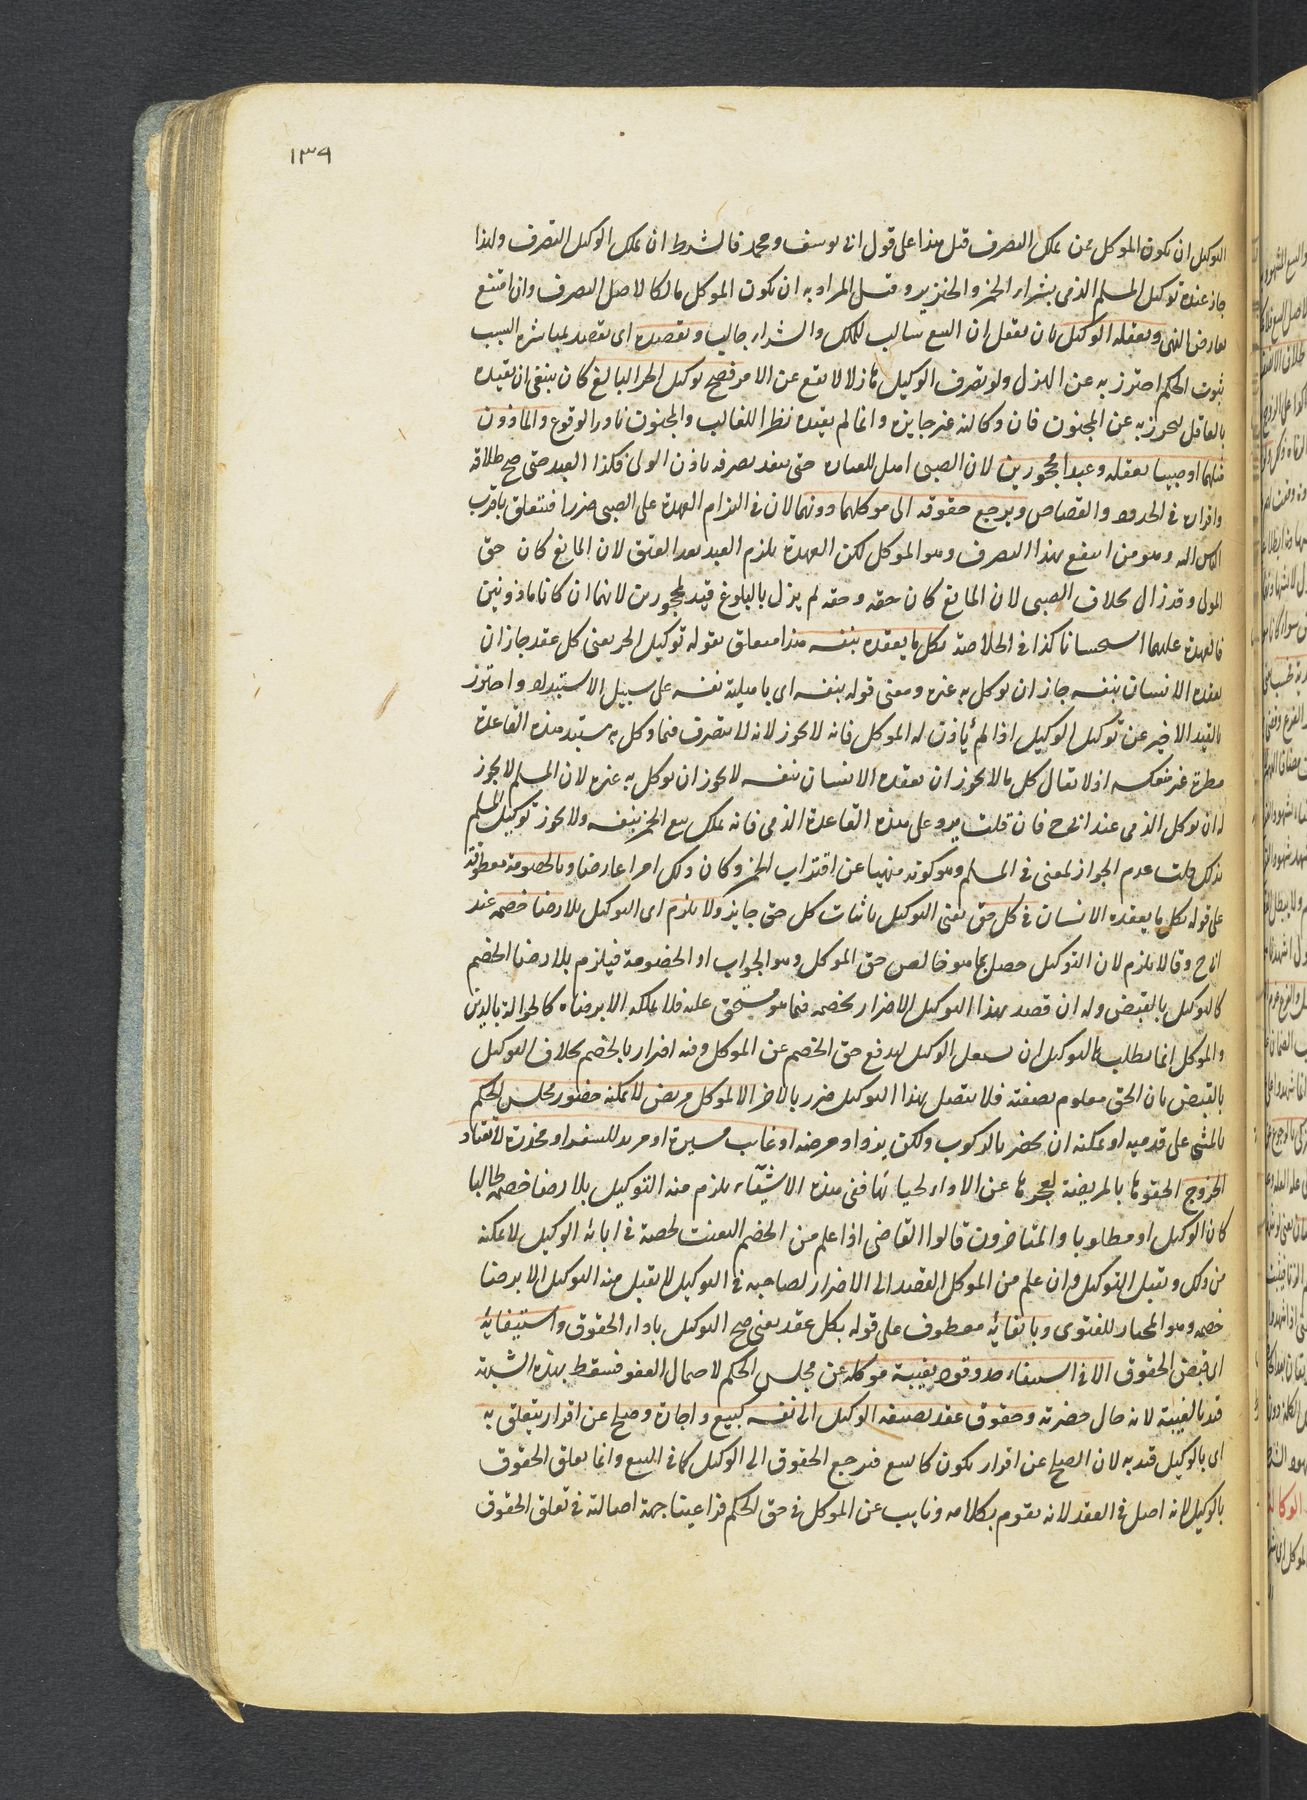 ١٣٩
التوكيل ان يكون الموكل ممن يملك التصرف قيل هذا على قول ابى يوسف ومحمد فالشرط ان يملك الوكيل التصرف ولهذا
جاز عنده توكيل المسلم الذمى بشراء الخمر والخنزير وقيل المراد به ان يكون الموكل مالكا لاصل التصرف وان امتنع
بعارض النهى ويعقله الوكيل بان يعقل ان البيع سالب للملك والشراء جالب ويقصده اى يقصد بمباشرة السبب
ثبوت الحكم احترز به عن الهزل ولو تصرف الوكيل هازلا لا يقع عن الامر فصح توكيل الحر البالغ كان ينبغى ان يقيده
بالعاقل ليحترز به عن المجنون فان وكالته غير جايزة وانما لم يقيده نظرا للغالب والمجنون نادر الوقوع والماذون
مثلهما او صبيا يعقله وعبدا محجورين لان الصبى اهل للعبارة حتى ينفد تصرفه باذن الولى فكذا العبد حتى صح طلاقه
واقراره فى الحدود والقصاص ويرجع حقوقه الى موكلهما دونهما لان فى التزام العهدة على الصبى ضررا فتتعلق باقرب
الناس اليه وهو من انتفع بهذا التصرف وهو الموكل لكن العهدة يلزم العبد بعد العتق لان المانع كان حق
المولى وقد زال بخلاف الصبى لان المانع كان حقه وحقه لم يزل بالبلوغ قيد بمحجورين لانهما ان كانا ماذونين
فالعهدة عليهما استحسانا كذا فى الخلاصة بكل ما يعقده بنفسه هذا متعلق بقوله توكيل الحر يعنى كل عقد جاز ان
يعقده الانسان بنفسه جاز ان يوكل به غيره ومعنى قوله بنفسه اى باهلية نفسه على سبيل الاستبداد واحترز
بالقيد الاخير عن توكيل الوكيل اذا لم ياذن له الموكل فانه لا يجوز لانه لا يتصرف فيما وكل به مستبد هذه القاعدة
مطردة غير منعكسه اذ لا يقال كل ما لا يجوز ان يعقده الانسان بنفسه لا يجوز ان يوكل به غيره لان المسلم لا يجوز
له ان يوكل الذمى عند ابى ح فان قلت يرد على هذه القاعدة الذمى فانه يملك بيع الخمر بنفسه ولا يجوز توكيل المسلم
بذلك قلت عدم الجواز لمعنى فى المسلم وهو كونه منهيا عن اقتراب الخمر وكان ذلك امرا عارضا وبالخصومة معطوفة
على قوله بكل ما يعقده الانسان فى كل حق يعنى التوكيل باثبات كل حق جايز ولا يلزم اى التوكيل بلا رضا خصمه عند
ابى ح وقالا يلزم لان التوكيل حصل بما هو خالص حق الموكل وهو الجواب او الخصومة فيلزم بلا رضا الخصم
كالتوكيل بالقبض وله ان قصد بهذا التوكيل الاضرار بخصمه فيما هو مستحق عليه فلا يملكه الا برضاه كالحوالة بالدين
والموكل انما يطلب بالتوكيل ان يفعل الوكيل ليدفع حق الخصم عن الموكل وفيه اضرار بالخصم بخلاف التوكيل
بالقبض بان الحق معلوم بصفته فلا يتصل بهذا التوكيل ضرر بالاخر الا لموكل مريض لا يمكنه حضور مجلس الحكم
بالمشى على قدميه او يمكنه ان يحضر بالركوب ولكن يزداد مرضه او غايب مسيرة او مريد للسفر او مخدرة لا تعتاد
الخروج الحقوها بالمريضة لعجزها عن الاداء لحيائها ففى هذه الاشياء يلزم منه التوكيل بلا رضا خصمه طالبا
كان الوكيل او مطلوبا والمتاخرون قالوا القاضى اذا علم من الخصم التعنت لخصمه فى اباء الوكيل لا يمكنه
من ذلك ويقبل التوكيل وان علم من الموكل القصد الى الاضرار لصاحبه فى التوكيل لا يقبل منه التوكيل الا برضا
خصمه وهو المختار للفتوى وبايفائه معطوف على قوله بكل عقد يعنى صح التوكيل باداء الحقوق واستيفائه
اى قبض الحقوق الا فى استيفاء حد وقود بغيبة موكله عن مجلس الحكم لاحتمال العفو فسقط بهذه الشبهة
قيد بالغيبة لانه حال حضرته وحقوق عقد يضيفه الوكيل الى نفسه كبيع واجارة وصلح عن اقرار يتعلق به
اى بالوكيل قيد به لان الصلح عن اقرار يكون كالبيع فيرجع الحقوق الى الوكيل كما فى البيع وانما يعلق الحقوق
بالوكيل لانه اصل فى العقد لانه يقوم بكلامه ونايب عن الموكل فى حق الحكم فراعينا جهة اصالته فى تعلق الحقوق